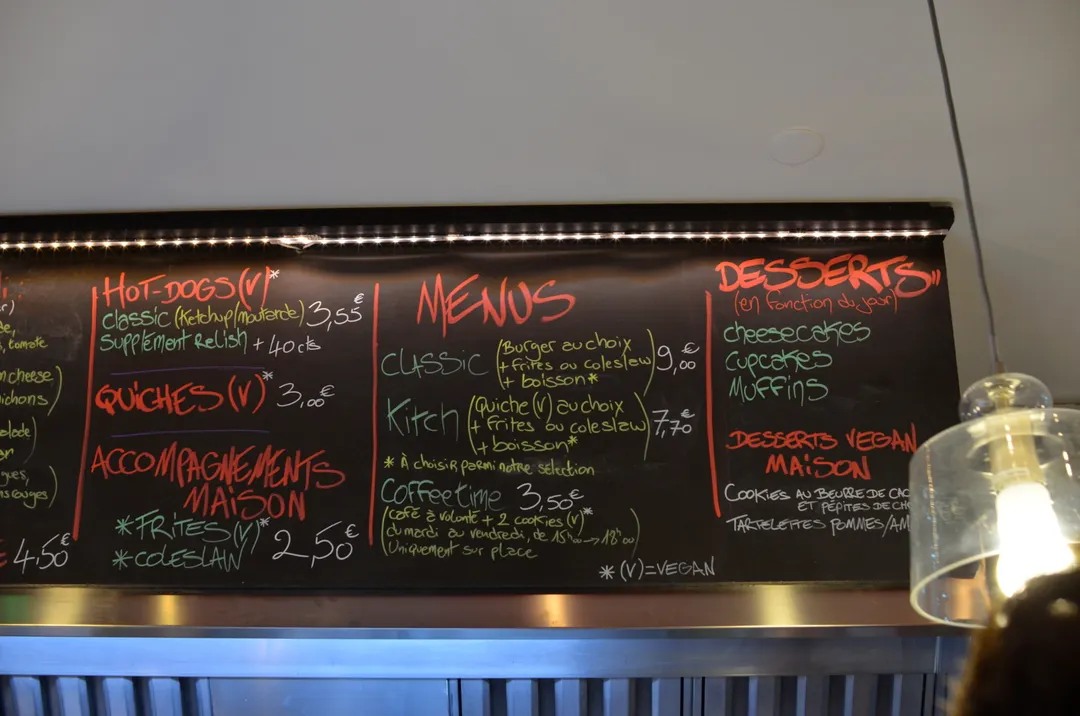 tomate
cheese)
4,50€
HOT-DOGS (V)*
Classic (Ketchup/moutarde) 3,55€
Supplément Relish + 40 cts
QUICHES (V)* 3,00€
ACCOMPAGNEMENTS
MAISON
* FRITES (V)*
* COLESLAW
2,50€
MENUS
CLASSIC (Burger au choix
+ frites ou coleslaw
+ boisson*) 9,00€
Kitch (Quiche (V) au choix
+ frites ou coleslaw
+ boisson*) 7,70€
* À choisir parmi notre sélection
Coffee time 3,50€
(café à volonté + 2 cookies (V)*
du mardi au vendredi, de 15h00 → 18h00)
Uniquement sur place
* (V) = VEGAN
DESSERTS
(en fonction du jour)
Cheesecakes
Cupcakes
Muffins
DESSERTS VEGAN
MAISON
COOKIES AU BEURRE DE
ET PÉPITES DE
TARTELETTES POMMES/